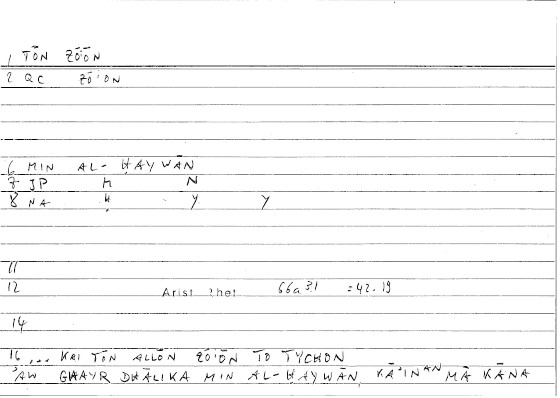 1 TŌN ZŌIŌN
2 QC ZŌION
6 MIN AL-ḤAYWĀN
7 JP Ḥ N
8 NA Ḥ Y Y
11
12 Arist Rhet 66a31 =42.19
14
16 ... KAI TŌN ALLŌN ZŌIŌN TO TYCHON
'AW GHAYR DHĀLIKA MIN AL-ḤAYWĀN, KĀ'INAN MĀ KĀNA